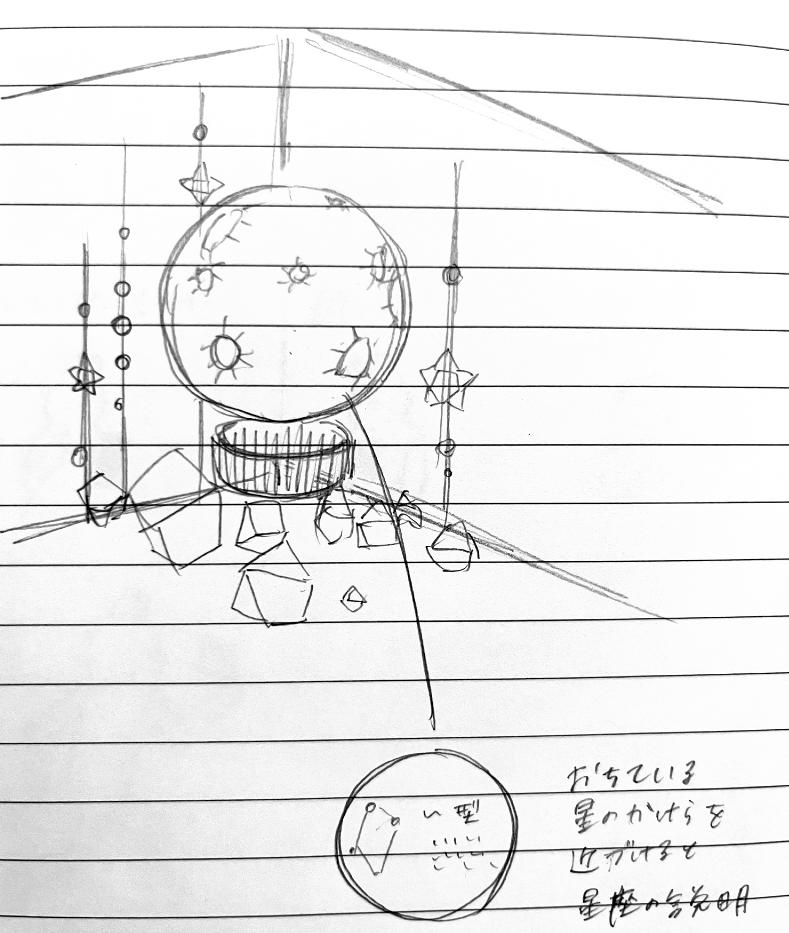 い座
おちている
星のかけらを
近づけると
星座の説明